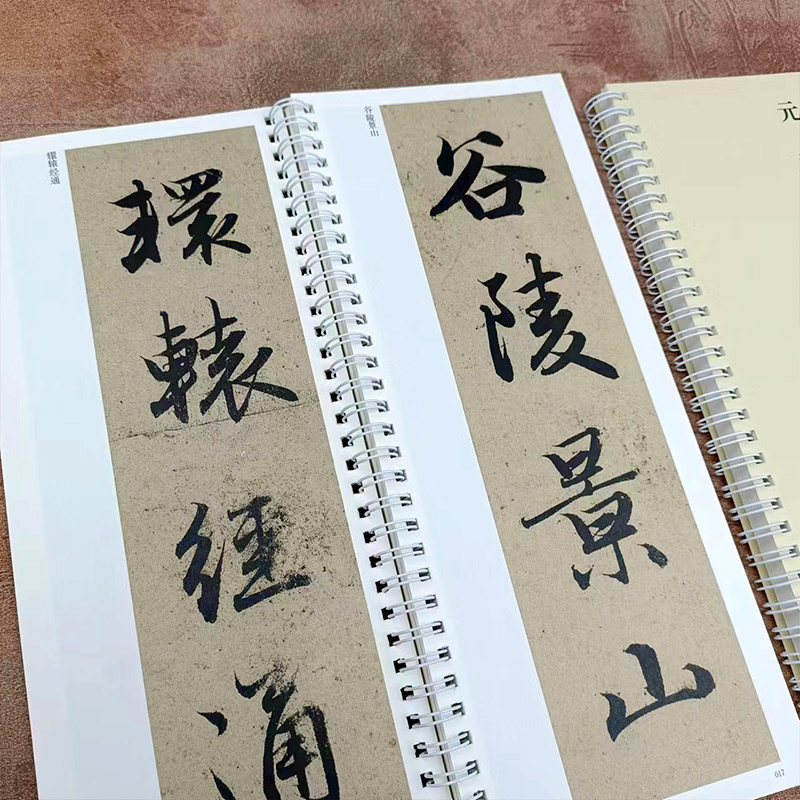 轘辕经通
轘轅經通
谷陵景山
谷陵景山
017
元